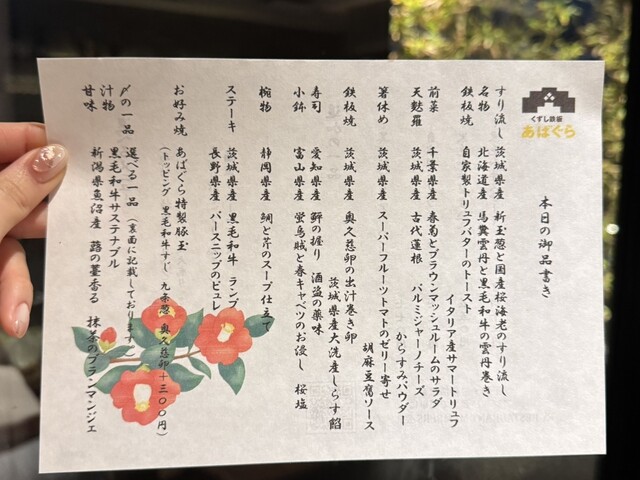 くずし鉄板
あばぐら
本日の御品書き
すり流し 茨城県産 新玉葱と国産桜海老のすり流し
名物 北海道産 馬糞雲丹と黒毛和牛の雲丹巻き
鉄板焼 自家製トリュフバターのトースト
イタリア産サマートリュフ
前菜 千葉県産 春菊とブラウンマッシュルームのサラダ
天麩羅 茨城県産 古代蓮根 パルミジャーノチーズ
からすみパウダー
箸休め 茨城県産 スーパーフルーツトマトのゼリー寄せ
胡麻豆腐ソース
鉄板焼 茨城県産 奥久慈卵の出汁巻き卵
茨城県産大洗産しらす餡
寿司 愛知県産 鮃の握り 酒盗の薬味
小鉢 富山県産 蛍烏賊と春キャベツのお浸し 桜塩
椀物 静岡県産 鯛と芹のスープ仕立て
ステーキ 茨城県産 黒毛和牛 ランプ
長野県産 パースニップのピュレ
お好み焼 あばぐら特製豚玉
(トッピング 黒毛和牛すじ 九条葱 奥久慈卵+300円)
〆の一品 選べる一品(裏面に記載しております)
汁物 黒毛和牛サステナブル
甘味 新潟県魚沼産 蕗の薹香る 抹茶のブランマンジェ